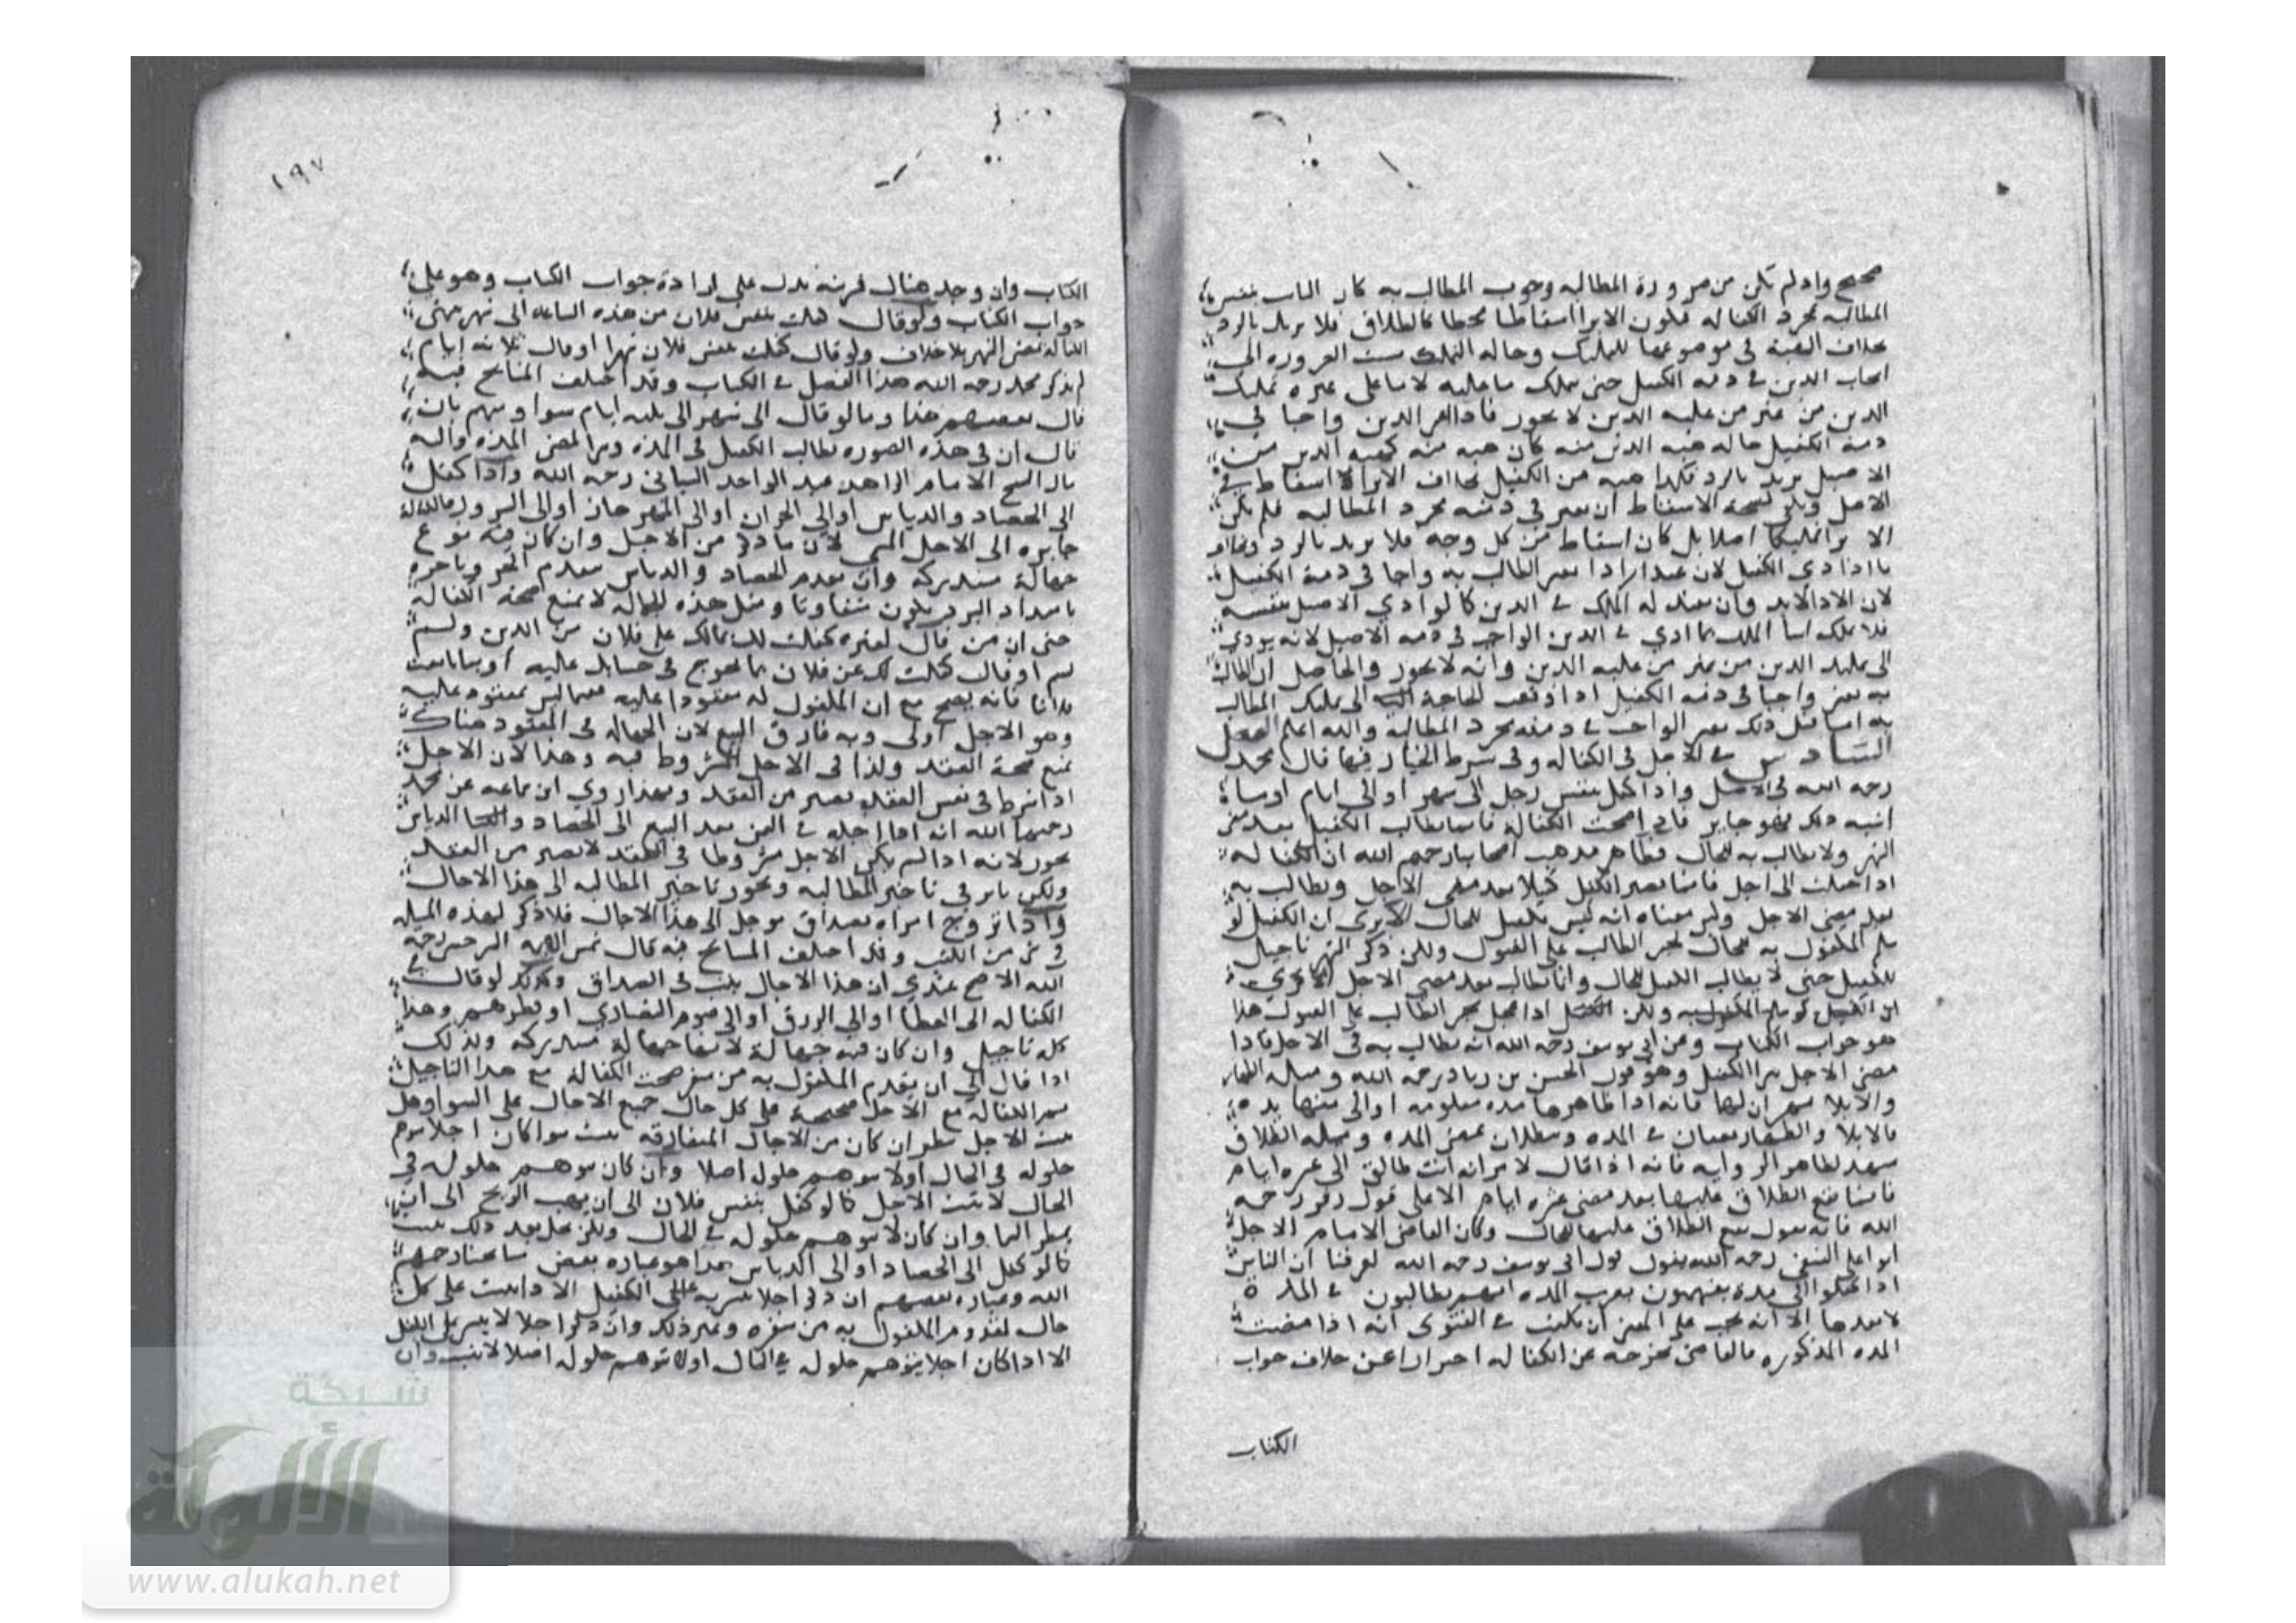 صحيح واذ لم يكن من ضرورة المطالبه وجوب المطالب به كان الثابت بنفس
المطالبه بمجرد الكفاله فيكون الابرا اسقاطا محضا كالطلاق فلا يرتد بالرد
بخلاف الهبة في موضوعها للتمليك وحاله التمليك مست الضروره الى
ايجاب الدين في ذمه الكفيل حتى يملك ما عليه لا ما على غيره تمليك
الدين من غير من عليه الدين لا يجوز فاذا الدين واجبا في
ذمة الكفيل حاله هبه الدين منه كان هبه منه كهبه الدين من
الاصيل يرتد بالرد فكذا هبه من الكفيل بخلاف الابرا لا اسقاط في
الاصل ويكفي لصحة الاسقاط ان يعتبر في ذمته مجرد المطالبه فلم يكن
الابرا تمليكا اصلا بل كان اسقاط من كل وجه فلا يرتد بالرد وبخلاف
ما اذا ادى الكفيل لان عند الادا يعتبر المطالب به واجبا في ذمة الكفيل
لان الادا لابد وان يفيد له الملك في الدين كما لو ادى الاصيل بنفسه
فلا يملك اثبات الملك بما ادى في الدين الواجب في ذمه الاصيل لانه يودي
الى تمليك الدين من غير من عليه الدين وانه لا يجوز والحاصل ان المطالب
به يعتبر واجبا في ذمه الكفيل اذا وقعت الحاجة الى تمليك المطالب
به اما قبل ذلك يعتبر الواجب في ذمته مجرد المطالبه والله اعلم الفصل
السادس في الاجل في الكفاله وفي شرط الخيار فيها قال محمد
رحه الله في الاصل واذا كفل بنفس رجل الى شهر او الى ايام او ما
اشبه ذلك فهو جايز فاذا صحت الكفالة فانما يطالب الكفيل بعد مضي
الشهر ولا يطالب به للحال فظاهر مذهب اصحابنا رحمهم الله ان الكفاله
اذا حصلت الى اجل فانما يصير الكفيل كفيلا بعد مضي الاجل ويطالب به
بعد مضي الاجل وليس معناه انه ليس بكفيل للحال الا يرى ان الكفيل لو
سلم المكفول به للحال يجبر الطالب على القبول ولكن ذكر الشهر تاجيل
للكفيل حتى لا يطالب الكفيل للحال وانما يطالب بعد مضي الاجل الا يرى
ان الكفيل لو سلم المكفول به ولكن الكفيل اذا عجل يجبر الطالب على القبول هذا
هو جواب الكتاب وعن ابي يوسف رحه الله انه يطالب به في الاجل فاذا
مضى الاجل يبرا الكفيل وهو قول الحسن بن زياد رحمه الله ومسله الظهار
والايلا تشهد ان لهما فانه اذا ظاهرها مده معلومه او الى منها مده
فالايلا والظهار يقعان في المده ويبطلان بمضي المده ومسله الطلاق
تشهد لظاهر الروايه فانه اذا قال لامراته انت طالق الى عشره ايام
فانما يقع الطلاق عليها بعد مضي عشره ايام الا على قول زفر رحمه
الله فانه يقول يقع الطلاق عليها للحال وكان القاضي الامام الاجل
ابو علي النسفي رحمه الله يقول قول ابي يوسف رحه الله لعرفنا ان الناس
اذا كفلوا الى مدة يفهمون بضرب المده انهم يطالبون في المدة
لا بعدها الا انه يجب على المفتي ان يكتب في الفتوى انه اذا مضت
المده المذكوره فالقاضي يخرجه عن الكفاله احترازا عن خلاف جواب
الكتاب
١٩٧
الكتاب وان وجد هناك قرينه تدل على ارادة جواب الكتاب وهو على
جواب الكتاب ولو قال كفلت بنفس فلان من هذه الساعه الى شهر ينتهي
الكفالة بمضي الشهر بلا خلاف ولو قال كفلت بنفس فلان شهرا او قال ثلاثه ايام
لم يذكر محمد رحمه الله هذا الفصل في الكتاب وقد اختلف المشايخ فيه
قال بعضهم هذا وما لو قال الى شهر الى ثلثه ايام سوا ومنهم من
قال ان في هذه الصوره يطالب الكفيل في المدة ويبرا بمضي المدة واليه
مال الشيخ الامام الزاهد عبد الواحد الشيباني رحمه الله واذا كفل
الى الحصاد والدياس او الى الجزاز او الى المهرجان او الى النيروز فالكفالة
جايزه الى الاجل المسمى لان ما ذكر من الاجل وان كان فيه نوع
جهالة مستدركه وان تقدم الحصاد والدياس بتقدم الحر وتاخره
بامتداد البرد يكون متفاوتا ومثل هذه الجهالة لا تمنع صحة الكفالة
حتى ان من قال لغيره كفلت لك بمالك على فلان من الدين ولم
يسم او قال كفلت لك عن فلان بما يخرج في حسابك عليه او بما بايعت
فلانا فانه يصح مع ان المكفول له معقودا عليه فما ليس بمعقود عليه
وهو الاجل اولى وبه فارق البيع لان الجهاله في المعقود هناك
تمنع صحة العقد ولذا في الاجل المشروط فيه وهذا لان الاجل
اذا شرط في نفس العقد يصير من العقد وبهذا روي ابن سماعه عن محمد
رحمهما الله انه اذا اجله في الثمن بعد البيع الى الحصاد والدياس
يجوز لانه اذا لم يكن الاجل مشروطا في العقد لا يصير من العقد
ولكن تاثيره في تاخير المطالبه ويجوز تاخير المطالبه الى هذا الاجال
واذا تزوج امراه بصداق موجل الى هذا الاجال فلا ذكر لهذه المسله
في شي من الكتب وقد اختلف المشايخ فيه قال شمس الايمه السرخسي رحه
الله الاصح عندي ان هذا الاجال يثبت في الصداق وكذلك لو قال في
الكفاله الى العطا او الى الرزق او الى صوم النصارى او فطرهم وهذا
كله تاجيل وان كان فيه جهالة لانها جهالة مستدركه ولذلك
اذا قال الى ان يقدم المكفول به من سفره صحت الكفالة مع هذا التاجيل
الكفاله مع الاجل صحيحة على كل حال جميع الاجال على السوا وهل
يثبت الاجل ينظر ان كان من الاجال المتعارفه يثبت سوا كان اجلا يتوهم
حلوله في الحال اولا يتوهم حلول اصلا وان كان يتوهم حلوله في
الحال لا يثبت الاجل كما لو كفل بنفس فلان الى ان يهب الريح الى ان
يمطر السما وان كان لا يتوهم حلوله في الحال ولكن يحل بعد ذلك يثبت
كما لو كفل الى الحصاد او الى الدياس هذا هو عباره بعض مشايخنا رحمهم
الله وعباره بعضهم ان ذكر اجلا على الكفيل الادا يثبت على كل
حال لقدوم المكفول به من سفره وغير ذلك وان ذكر اجلا لا الكفيل
الا اذا كان اجلا يتوهم حلوله في الحال او لا يتوهم حلوله اصلا لا يثبت وان
شبكة
الألوكة
www.alukah.net